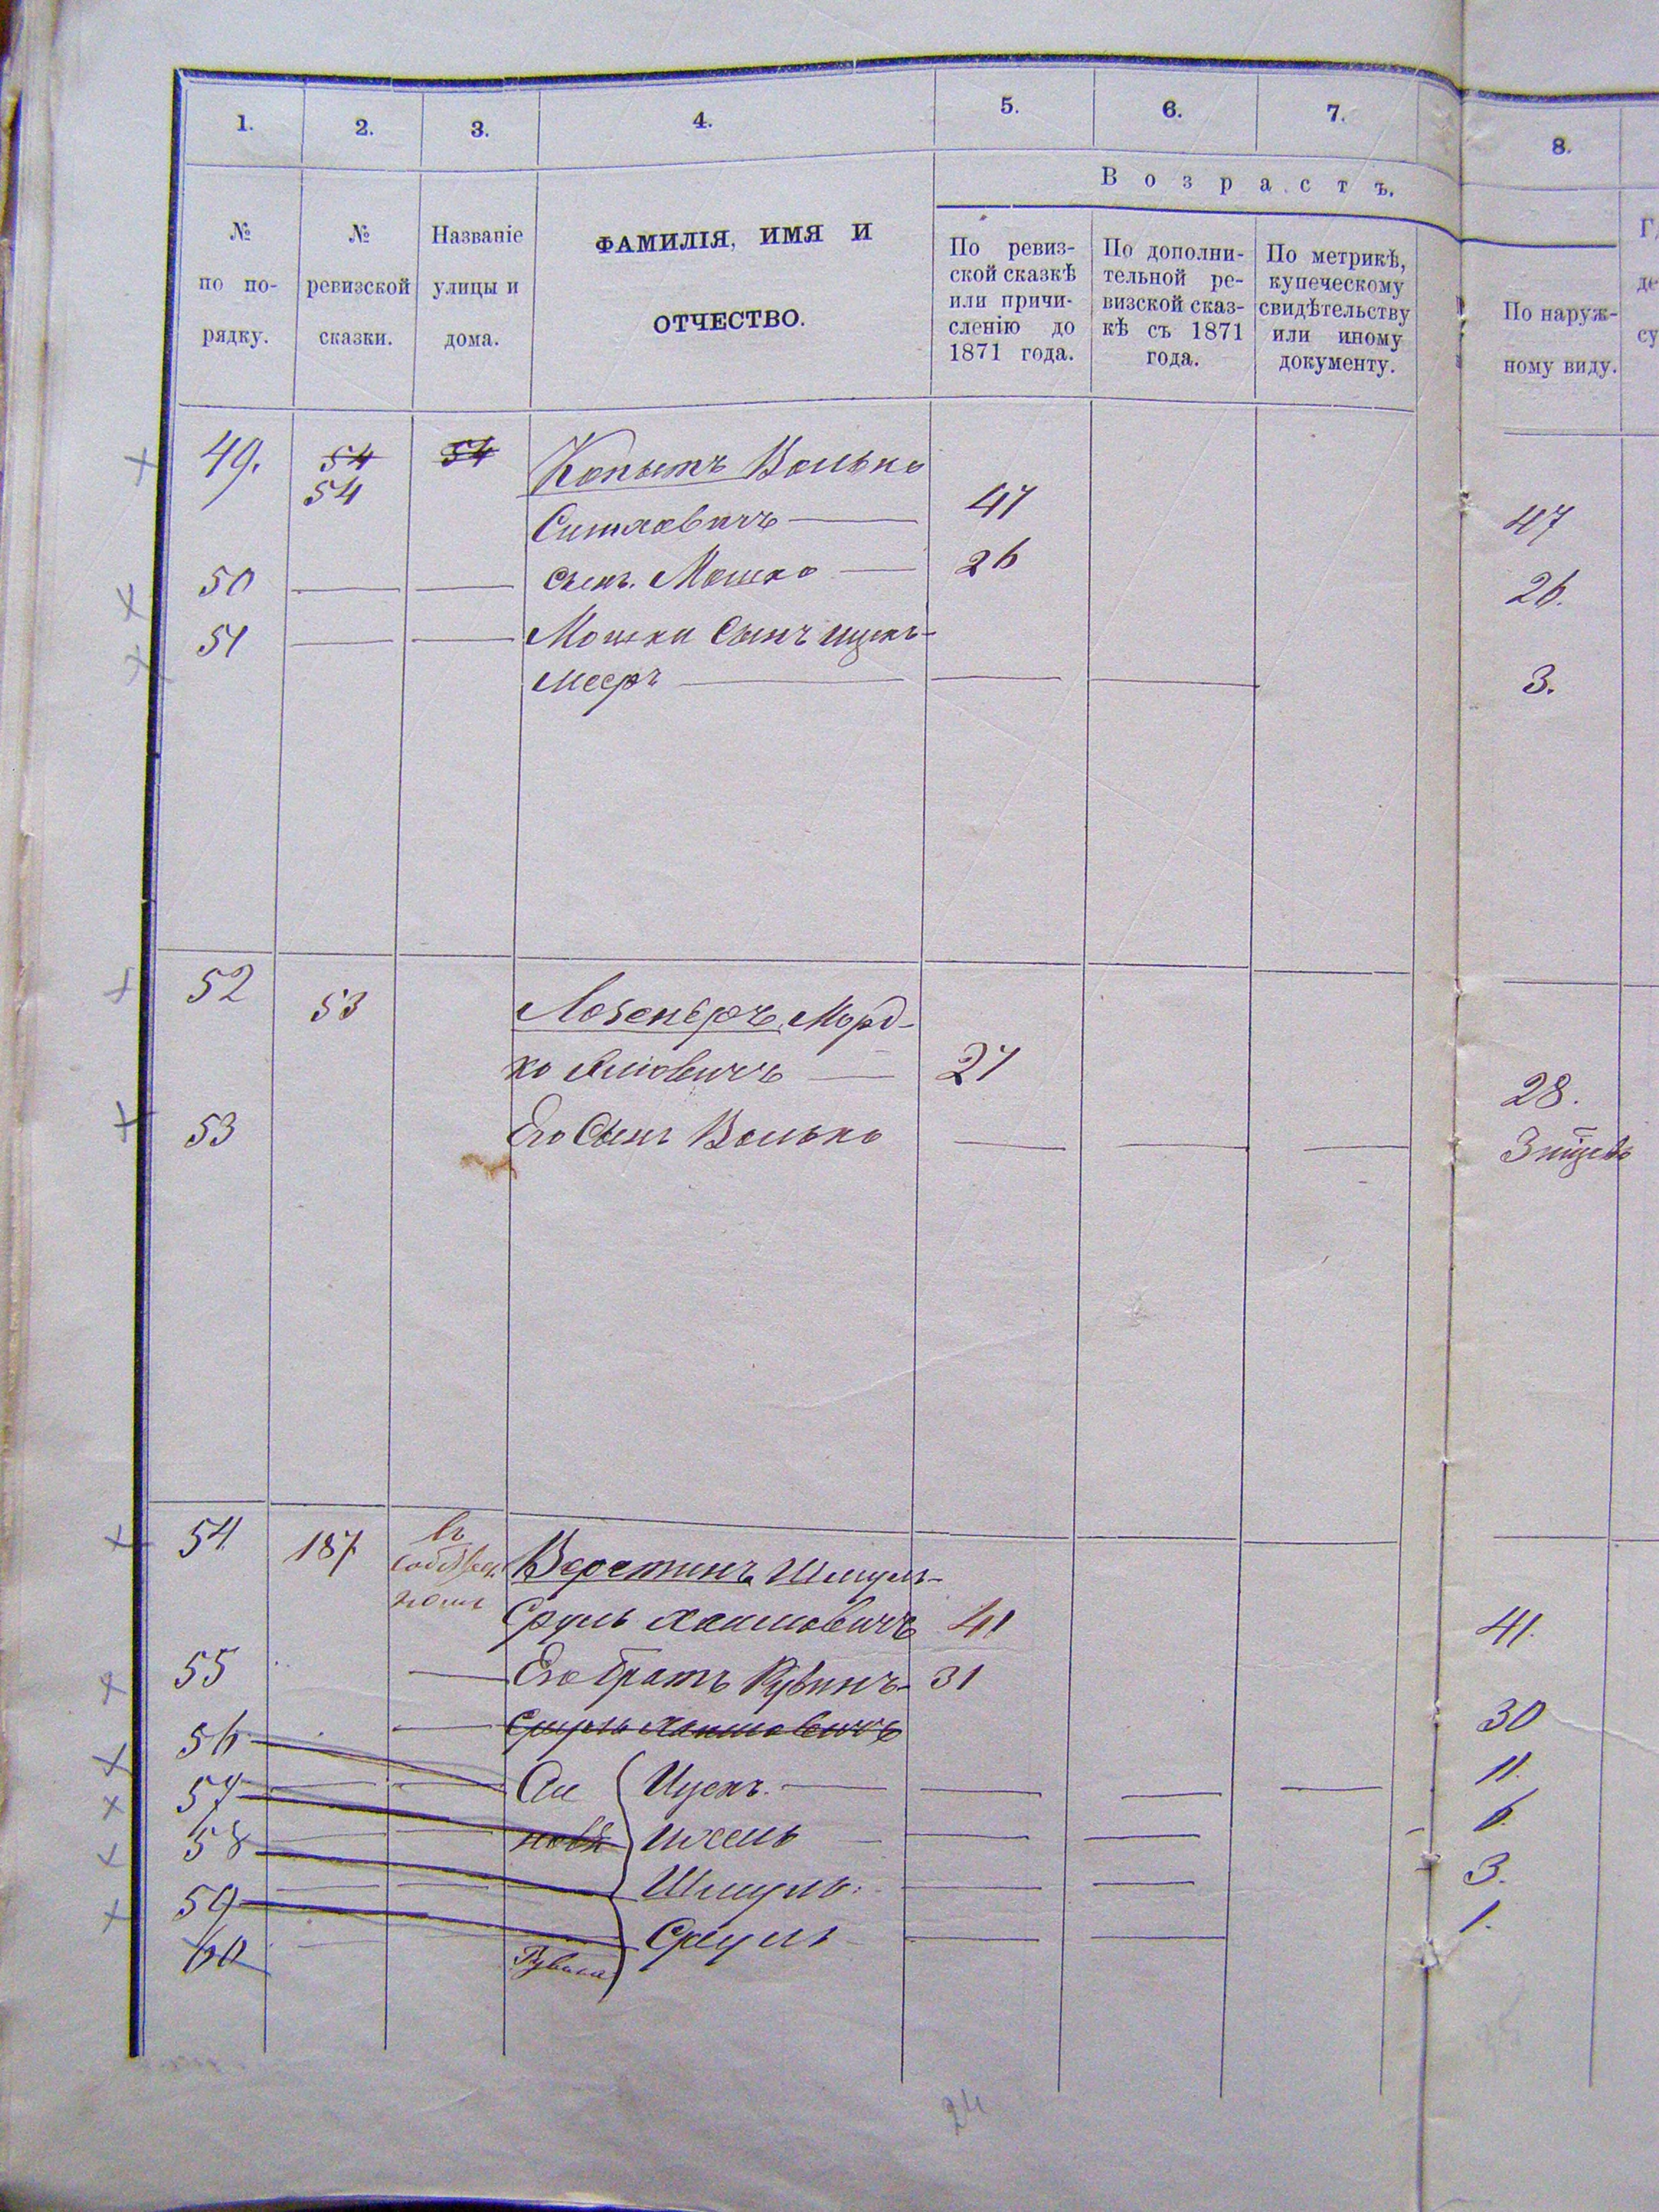 1. 2. 3. 4. 5. 6. 7. 8.
Возрастъ.
№ по по-рядку.
№ ревизской сказки.
Названіе улицы и дома.
ФАМИЛІЯ, ИМЯ И
ОТЧЕСТВО.
По ревиз-
ской сказкѣ
или причи-
сленію до
1871 года.
По дополни-
тельной ре-
визской сказ-
кѣ съ 1871
года.
По метрикѣ,
купеческому
свидѣтельству
или иному
документу.
По наруж-
ному виду.
49. 54 54 Копытъ Волько
54
47 47
50 сынъ Мошко 26 26.
51 Мошки сынъ Ицкъ-
Мееръ 3.
52 53 ЛозенберъМорд-
ко 27 28.
53 Его сынъ Волько
54 187 въ
собствен.
Веретинъ Шмуль-
Сруль Хаимовичъ 41 41.
55 Его братъ Рувинъ- 31 30
56 Сруль Хаимовичъ
57 Сы Ицекъ. 11.
58 новья Иосель 6.
59 Шмуль. 3.
60 Рувина Сруль 1.
24